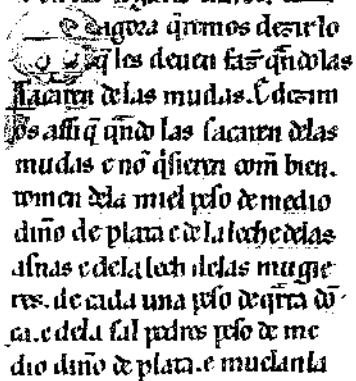 E agora q̃remos dezir lo
q̃ les deuen faz̃ q̃ndo las
sacaren delas mudas. E dezim
os assi q̃ q̃ndo las sacaren delas
mudas e nõ q̃sieren com̃ bien.
tomen dela miel peso de medio
diño de plata e de la leche delas
asnas e dela lech delas mugie
res. de cada una peso de q̃rta do
ca. e dela sal pedres peso de me
dio diño de plata. e mueclanla